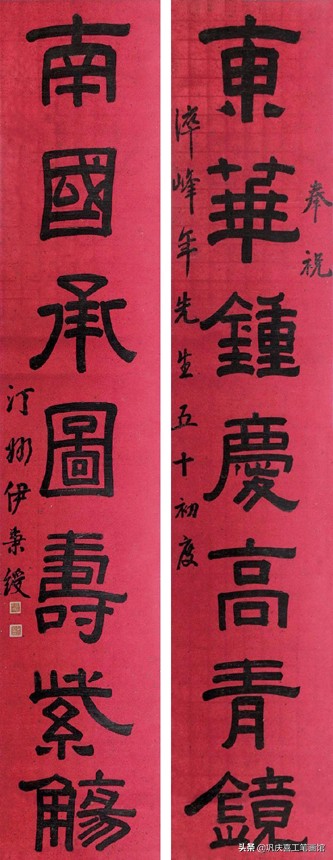 奉祝
東華鍾慶高青鏡
淬峰年先生五十初度
南國承圖壽紫觴
汀州伊秉綬
头条 @巩庆喜工笔画馆